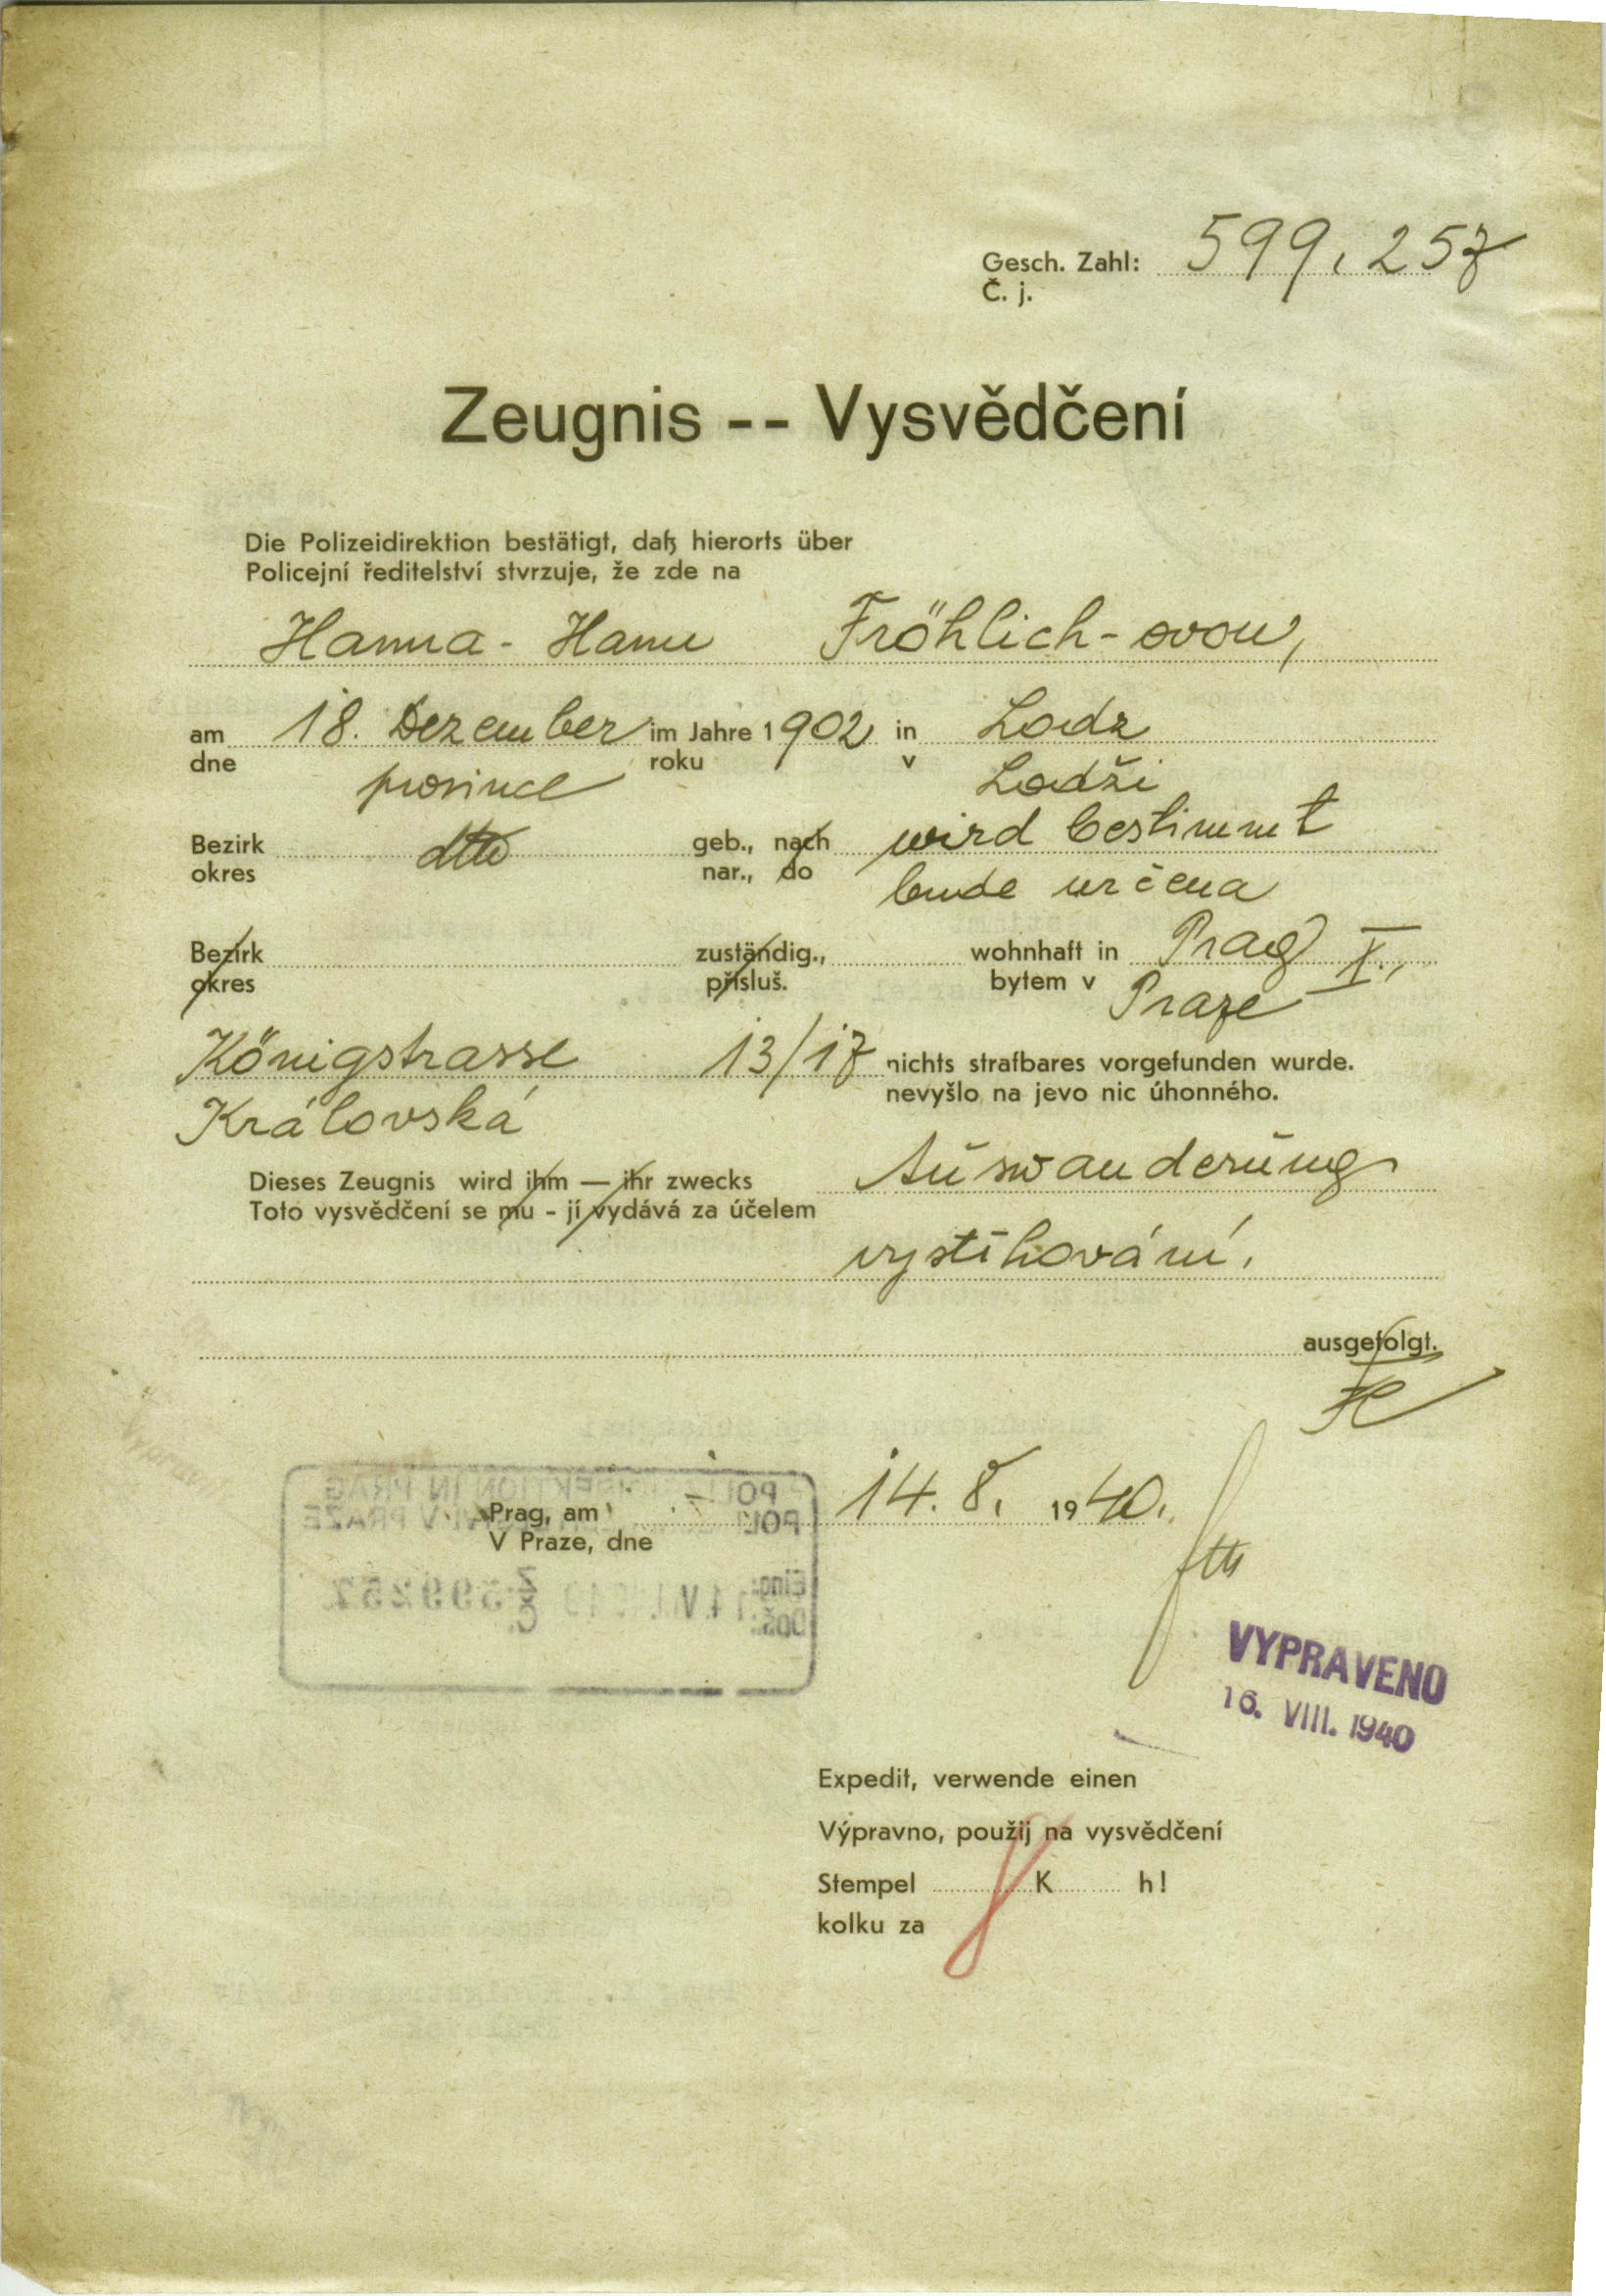 Gesch. Zahl: 599.257
Č. j.
Zeugnis -- Vysvědčení
Die Polizeidirektion bestätigt, daß hierorts über
Policejní ředitelství stvrzuje, že zde na
Hanna - Hanu Fröhlich-ovou,
am 18. Dezember im Jahre 1902 in Lodz
dne prosince roku v Lodži
Bezirk dtto geb., nach wird bestimmt
okres nar., do bude určena
Bezirk zuständig., wohnhaft in Prag X.,
okres přísluš. bytem v Praze
Königstrasse 13/17 nichts strafbares vorgefunden wurde.
Královská nevyšlo na jevo nic úhonného.
Dieses Zeugnis wird ihm — ihr zwecks Auswanderung
Toto vysvědčení se mu - jí vydává za účelem
vystěhování.
ausgefolgt.
Prag, am 14. 8. 1940.
V Praze, dne
POLIZEIDIREKTION IN PRAG
POLICEJNÍ ŘEDITELSTVÍ V PRAZE
Eing.: 14. VIII. 1940 Z 599257
Došlo: Č.
VYPRAVENO
16. VIII. 1940
Expedit, verwende einen
Výpravno, použij na vysvědčení
Stempel K h!
kolku za